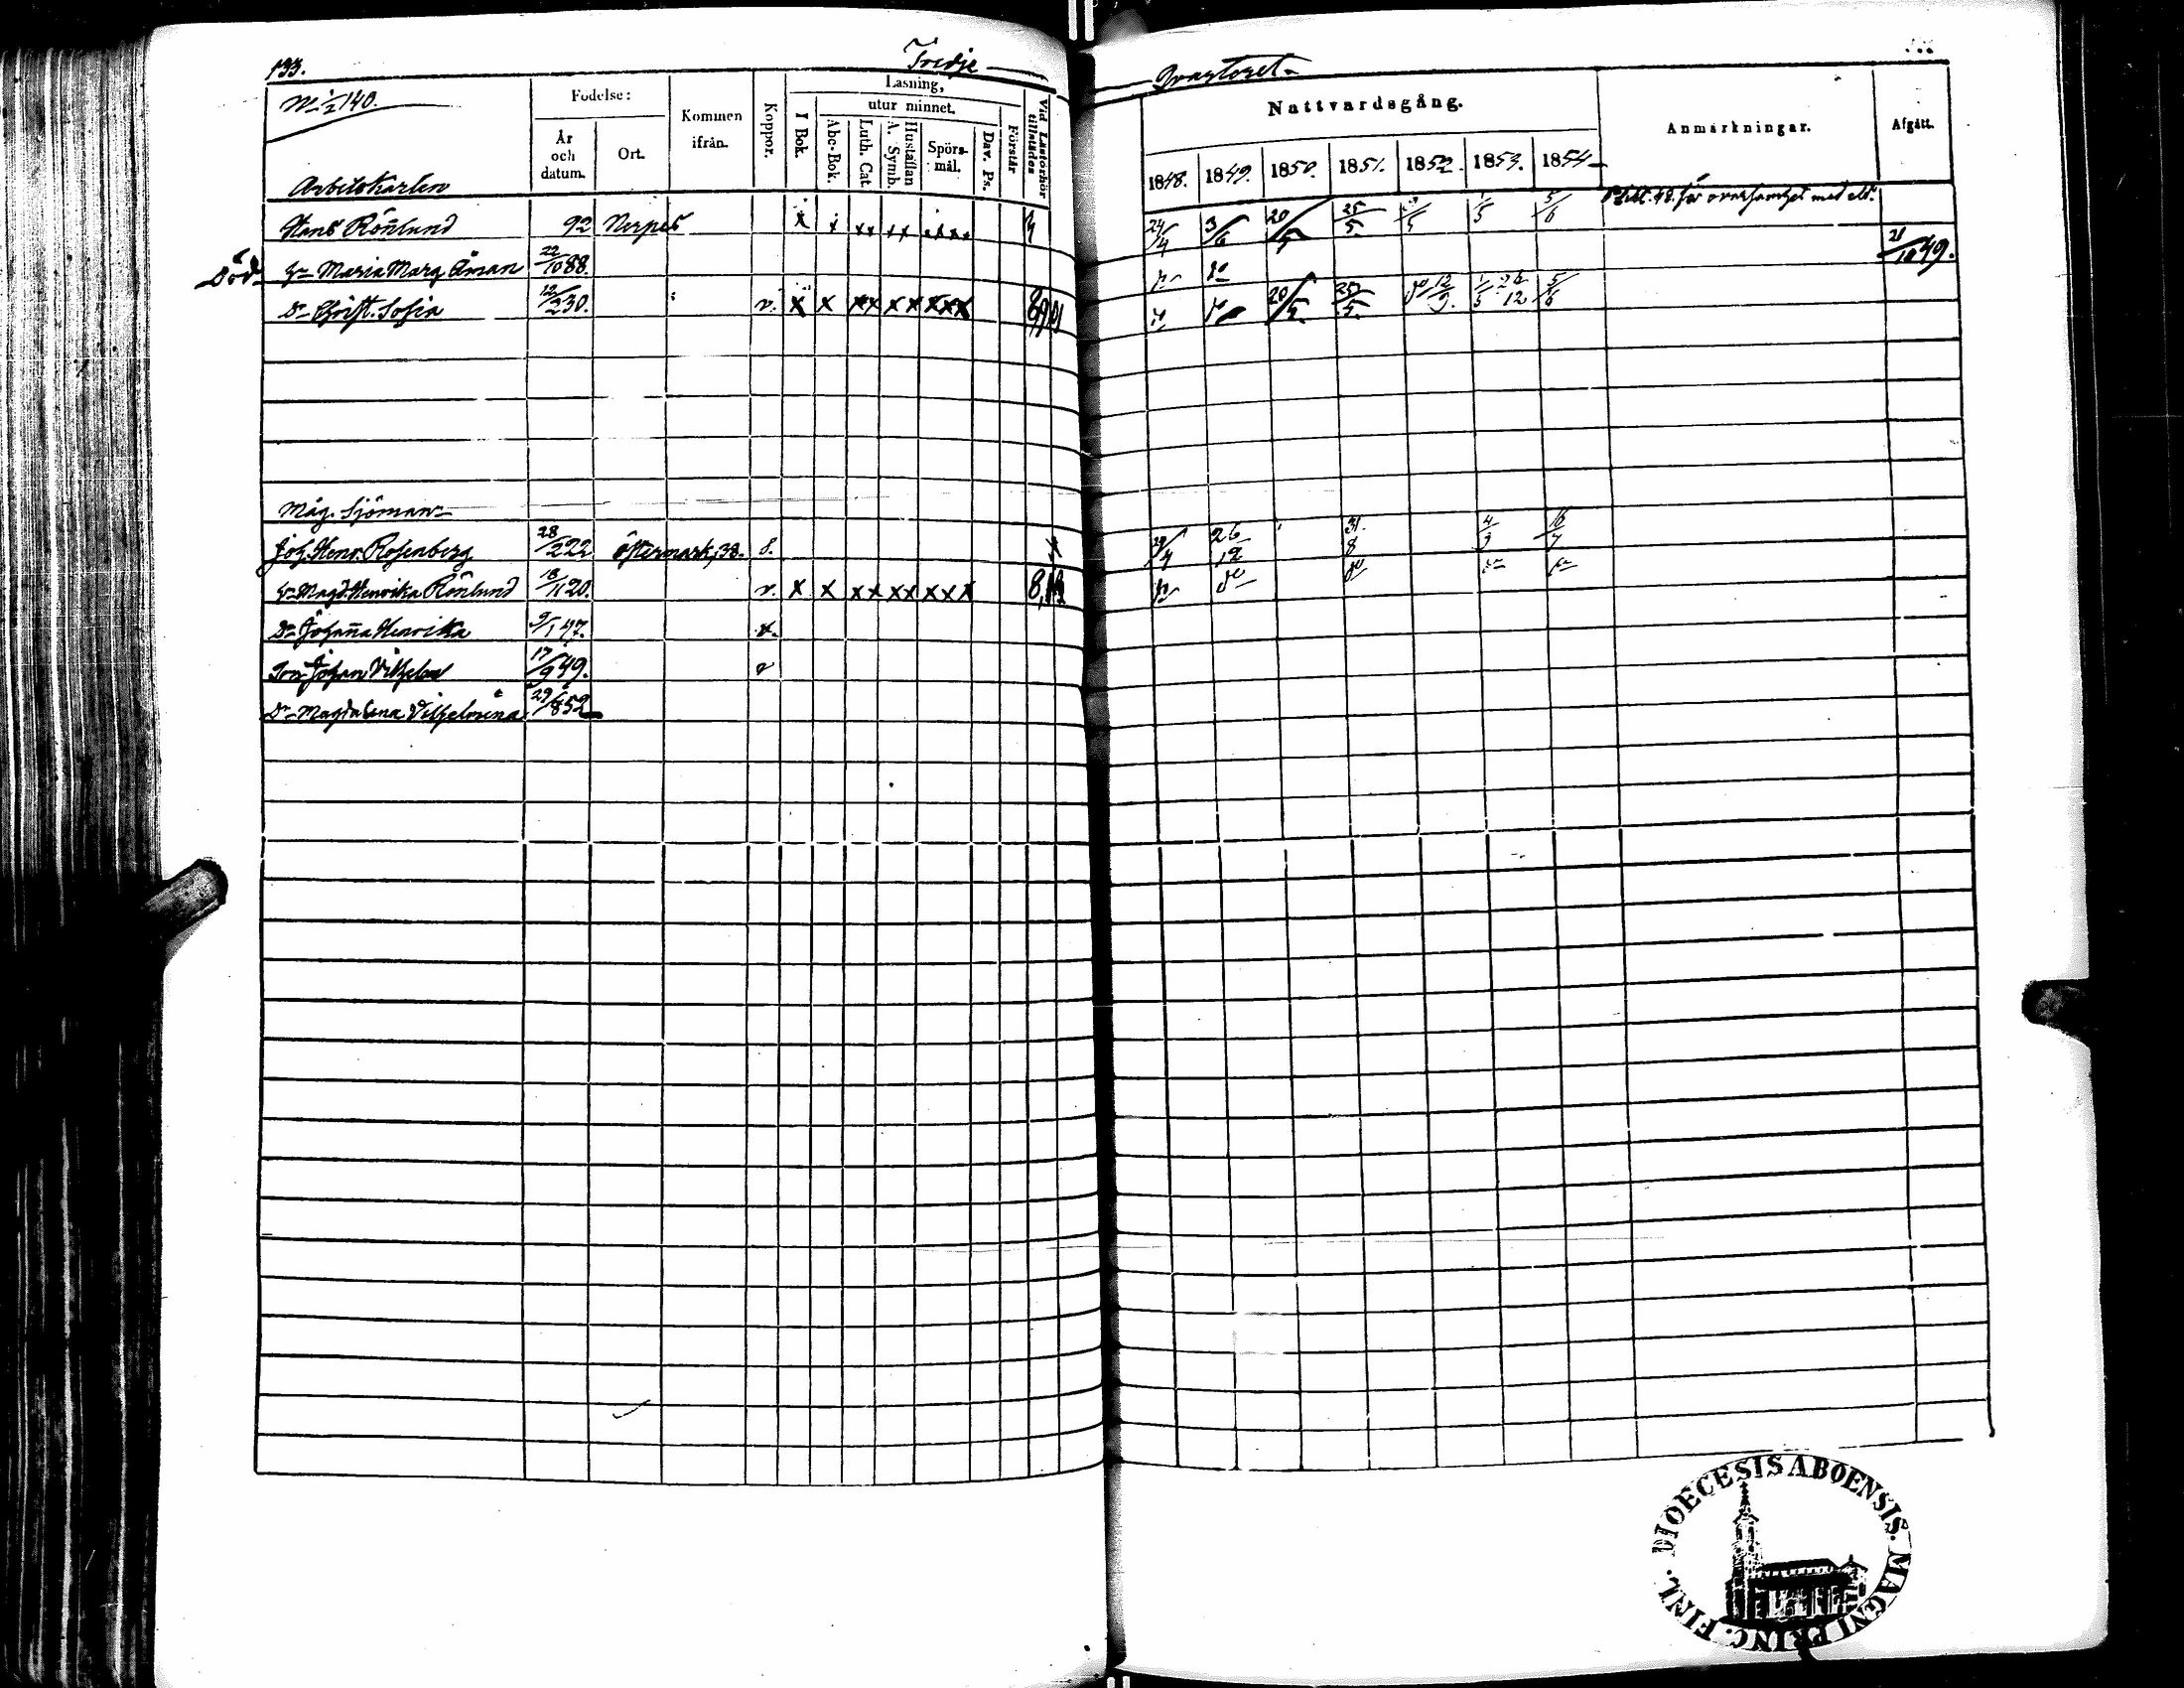 133. Tredje Qvarteret
No 140.
Födelse:
Läsning,
utur minnet.
År och datum.
Ort.
Kommen ifrån.
Koppor.
I Bok.
Abc-Bok.
Luth. Cat.
A. Symb.
Hustaflan
Spörsmål.
Dav. Ps.
Förstår
Vid Läsförhör tillstädes
Nattvardsgång.
1848. 1849. 1850. 1851. 1852. 1853. 1854
Anmärkningar.
Afgått.
Arbetskarlen
Hans Rönlund 92 Nerpes x x xx xx 24/4 3/6 20/5 25/5 5/6 för ovarsamhet med eld.
Död Hu Maria Marg Åman 22/10 88. do 21/10 49.
Dr Christ. Sofia 12/2 30. v. x x xx xx xxx 20/5 25/5 12/9. 26/12 5/6
Måg. Sjöman
Joh. Henr. Rosenberg 28/2 22 Östermark, 38. s. 29/4 26/12 31/8 4/9 16/7
Hu Magd. Henrika Rönlund 18/11 20. v. x x xx xx xxx
Dr Johanna Henrika 9/1 47. v.
Son Johan Vilhelm 17/9 49. v
Dr Magdalena Vilhelmina 29/8 52
DIOECESIS ABOENSIS. MAGNI PRINC. FINL.